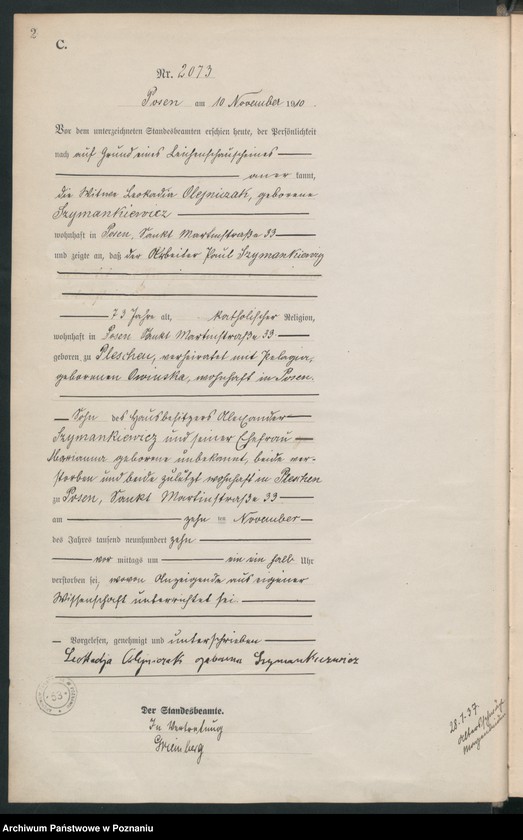 2
C.
Nr. 2073
Posen am 10 November 1910.
Vor dem unterzeichneten Standesbeamten erschien heute, der Persönlichkeit
nach auf Grund eines Leichenschauscheines
aner kannt,
die Witwe Leokadia Olejniczak, geborene
Szymankiewicz
wohnhaft in Posen, Sankt Martinstraße 33
und zeigte an, daß der Arbeiter Paul Szymankiewicz
73 Jahre alt, katholischer Religion,
wohnhaft in Posen Sankt Martinstraße 33
geboren zu Pleschen, verheiratet mit Pelagia,
geborenen Owinska, wohnhaft in Posen.
Sohn des Hausbesitzers Alexander
Szymankiewicz und seiner Ehefrau
Marianna geborene unbekannt, beide ver-
storben und beide zuletzt wohnhaft in Pleschen
zu Posen, Sankt Martinstraße 33
am zehn ten November
des Jahres tausend neunhundert zehn
vor mittags um ein ein halb Uhr
verstorben sei, wovon Anzeigende aus eigener
Wissenschaft unterrichtet sei
Vorgelesen, genehmigt und unterschrieben
Leokadja Olejniczak geborene Szymankiewicz
Der Standesbeamte.
In Vertretung
28.1.37
Archiwum Państwowe w Poznaniu